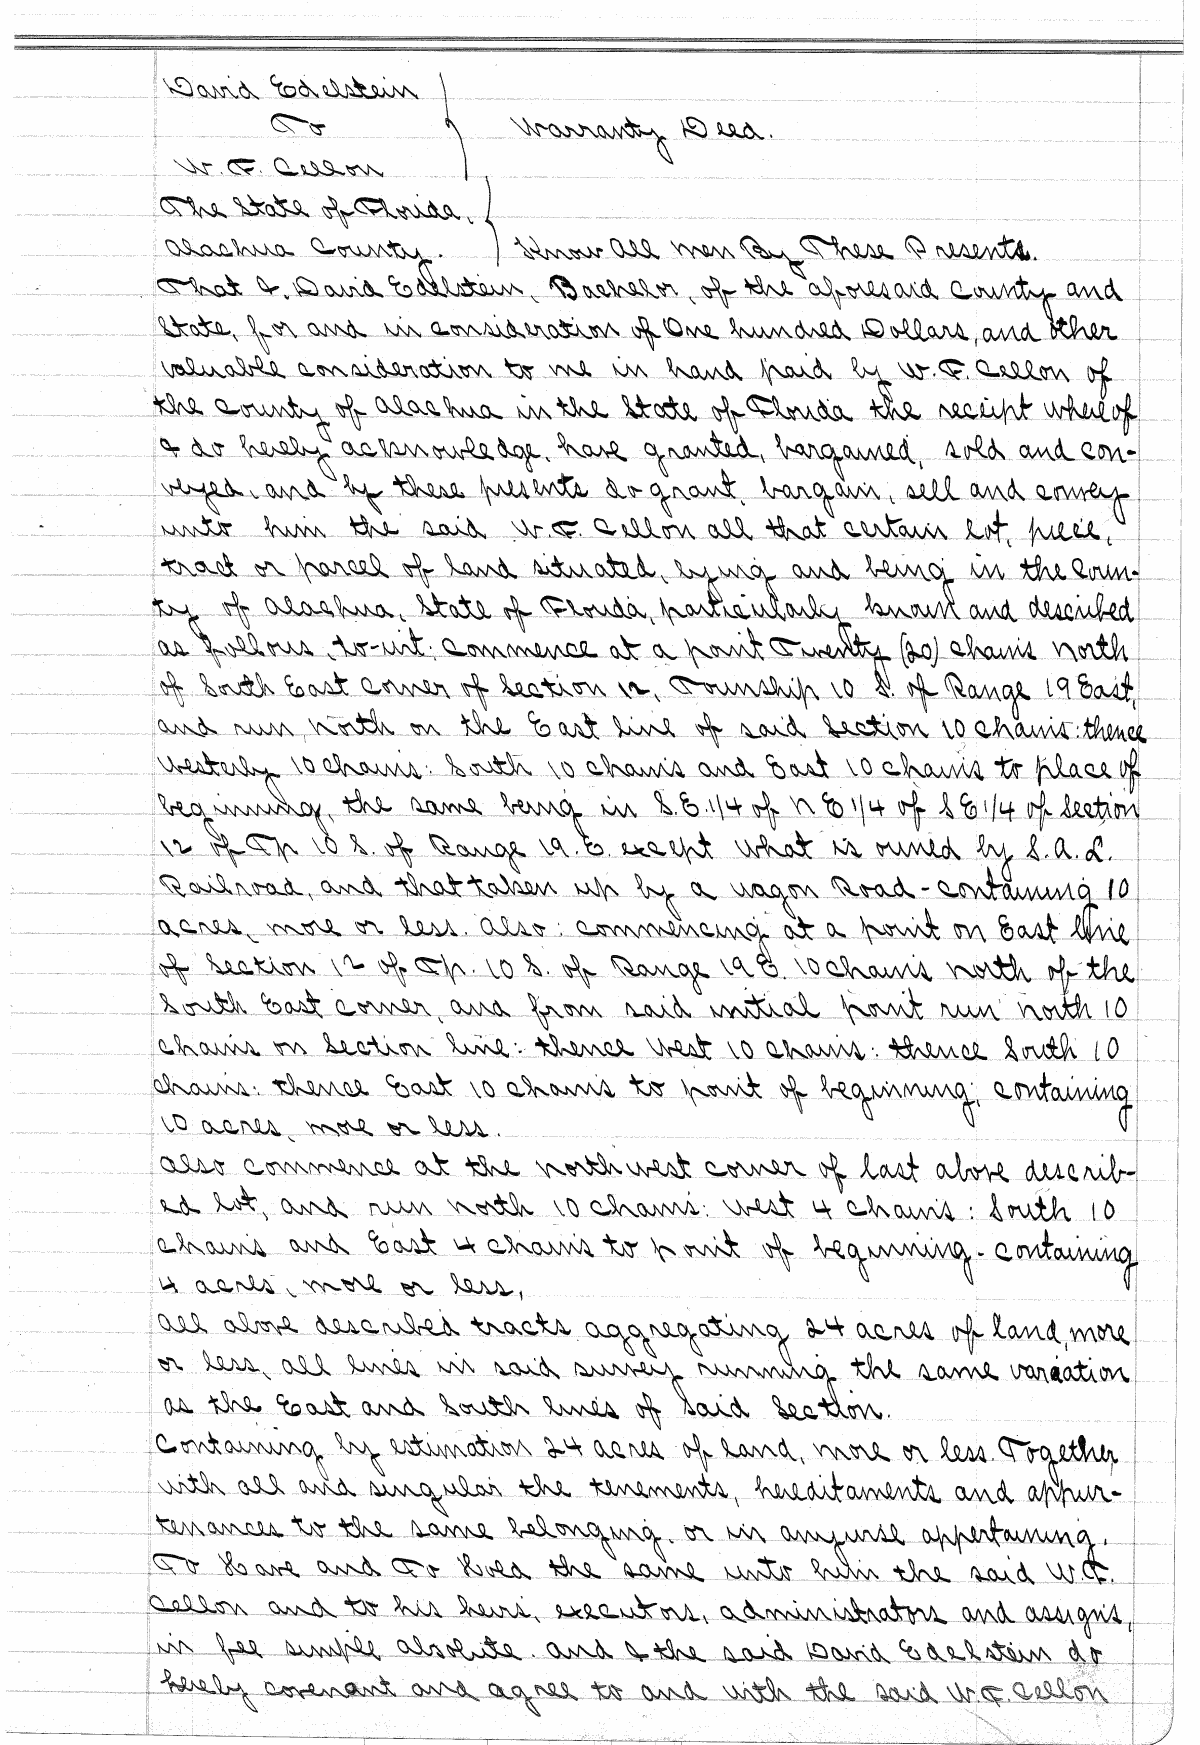 David Edelstein
To
Warranty Deed.
W. F. Cellon
The State of Florida,
Alachua County. Know All Men By These Presents.
That I, David Edelstein, Bachelor, of the aforesaid County and
State, for and in consideration of One hundred Dollars, and other
valuable consideration to me in hand paid by W. F. Cellon of
the County of Alachua in the State of Florida the receipt whereof
I do hereby acknowledge, have granted, bargained, sold and con-
veyed, and by these presents do grant, bargain, sell and convey
unto him the said W. F. Cellon all that certain lot, piece,
tract or parcel of land situated, lying and being in the Coun-
ty of Alachua, State of Florida, particularly known and described
as follows, to-wit: Commence at a point Twenty (20) chains North
of South East Corner of Section 12, Township 10 S. of Range 19 East,
and run north on the East line of said Section 10 chains: thence
Westerly 10 chains: South 10 chains and East 10 chains to place of
beginning, the same being in S.E. 1/4 of N E 1/4 of S E 1/4 of Section
12 of Tp 10 S. of Range 19. E. except what is owned by S. A. L.
Railroad, and that taken up by a wagon Road - containing 10
acres, more or less. Also: commencing at a point on East line
of Section 12 of Tp. 10 S. of Range 19 E. 10 chains north of the
South East corner, and from said initial point run north 10
chains on Section line: thence West 10 chains: thence South 10
chains: thence East 10 chains to point of beginning; containing
10 acres, more or less.
Also commence at the northwest corner of last above describ-
ed lot, and run north 10 chains: West 4 chains: South 10
chains and East 4 chains to point of beginning - containing
4 acres, more or less,
All above described tracts aggregating 24 acres of land, more
or less, all lines in said survey running the same variation
as the East and South lines of said Section.
Containing by estimation 24 acres of land, more or less. Together
with all and singular the tenements, hereditaments and appur-
tenances to the same belonging, or in anywise appertaining.
To Have and To Hold the same unto him the said W. F.
Cellon and to his heirs, executors, administrators and assigns,
in fee simple absolute. and I the said David Edelstein do
hereby covenant and agree to and with the said W. F. Cellon